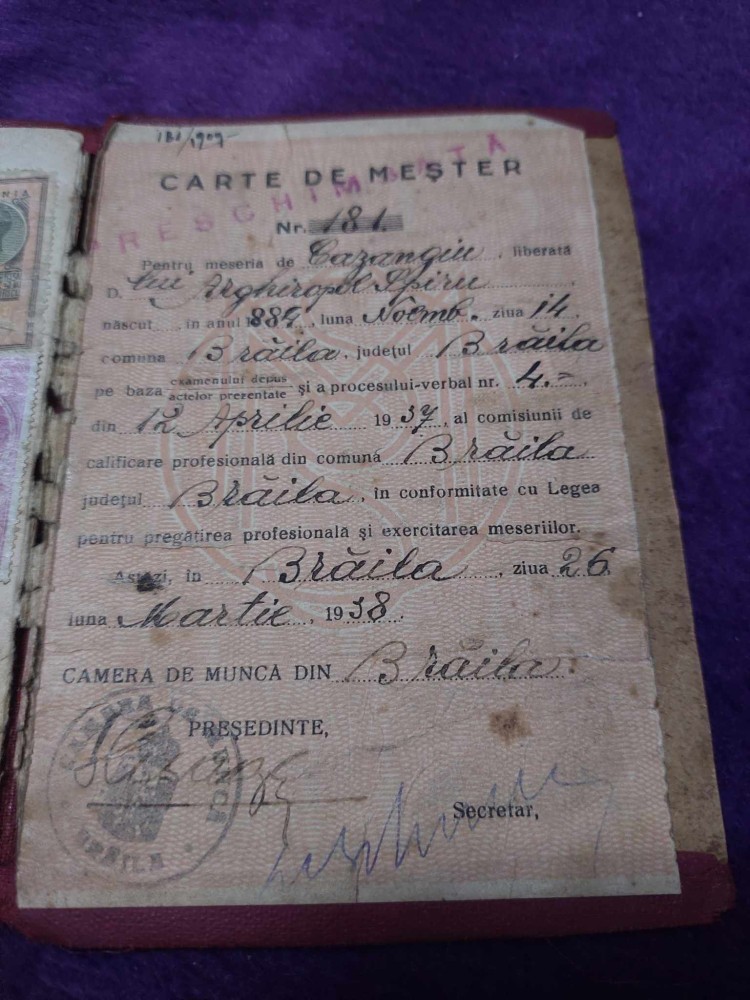 181/1909
PRESCHIMBATĂ
CARTE DE MEȘTER
Nr. 181.
Pentru meseria de Cazangiu, liberată
D. lui Arghiropol Spiru
născut în anul 1889, luna Noemb. ziua 14.
comuna Brăila, județul Brăila
pe baza examenului depus
actelor prezentate și a procesului-verbal nr. 4.-
din 12 Aprilie 1937, al comisiunii de
calificare profesională din comună Brăila
județul Brăila, in conformitate cu Legea
pentru pregătirea profesională și exercitarea meseriilor.
Astăzi, in Brăila, ziua 26
luna Martie, 1938.
CAMERA DE MUNCĂ DIN Brăila.
PREȘEDINTE,
Secretar,
CAMERA DE MUNCĂ
BRĂILA